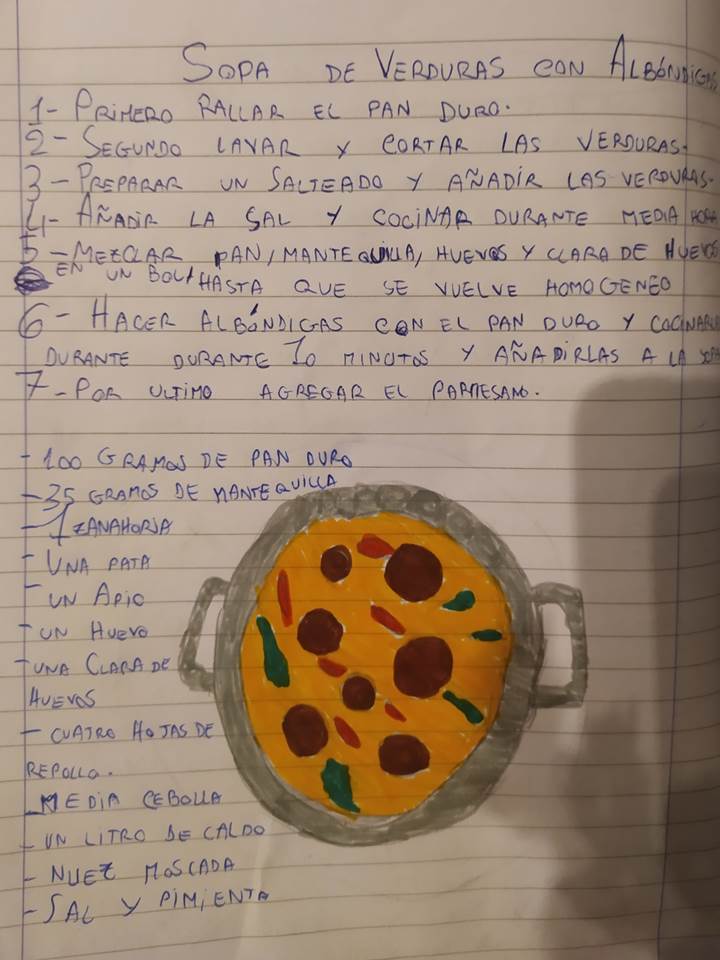 SOPA DE VERDURAS CON ALBÓNDIGAS
1- PRIMERO RALLAR EL PAN DURO.
2- SEGUNDO LAVAR Y CORTAR LAS VERDURAS.
3- PREPARAR UN SALTEADO Y AÑADIR LAS VERDURAS.
4- AÑADIR LA SAL Y COCINAR DURANTE MEDIA HORA
5- MEZCLAR PAN, MANTEQUILLA, HUEVOS Y CLARA DE HUEVOS
EN UN BOL HASTA QUE SE VUELVE HOMOGENEO
6- HACER ALBÓNDIGAS CON EL PAN DURO Y COCINARLAS
DURANTE DURANTE 10 MINUTOS Y AÑADIRLAS A LA SOPA
7- POR ULTIMO AGREGAR EL PARMESANO.
- 100 GRAMOS DE PAN DURO
- 35 GRAMOS DE MANTEQUILLA
- 1 ZANAHORIA
- UNA PATA
- UN APIO
- UN HUEVO
- UNA CLARA DE
HUEVOS
- CUATRO HOJAS DE
REPOLLO.
- MEDIA CEBOLLA
- UN LITRO DE CALDO
- NUEZ MOSCADA
- SAL Y PIMIENTA